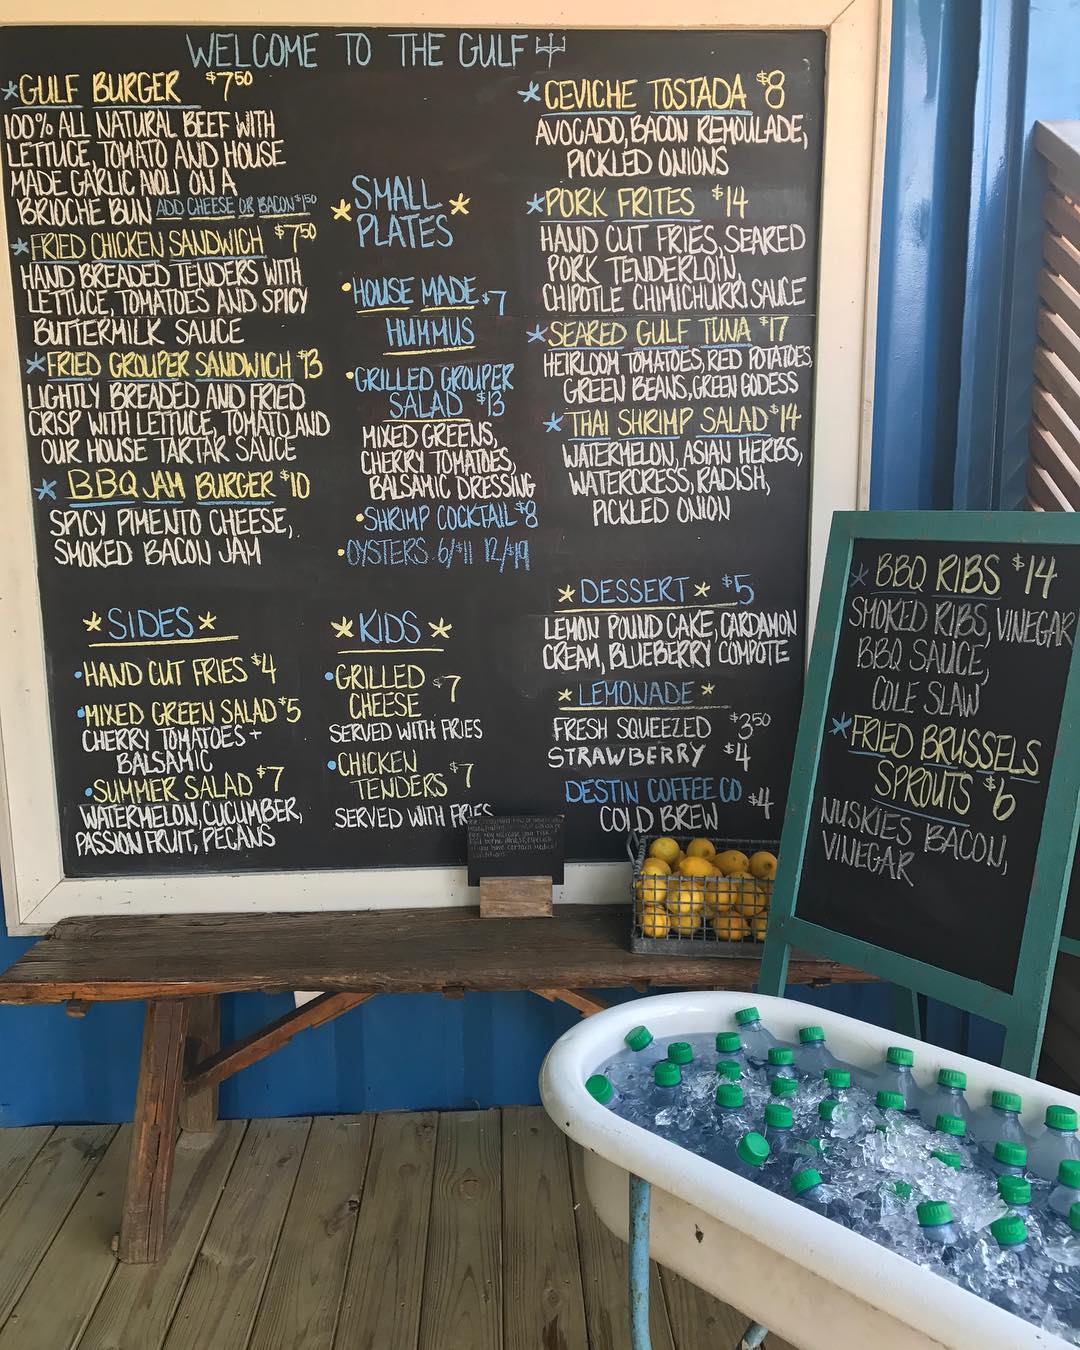 WELCOME TO THE GULF
GULF BURGER $7⁵⁰
100% ALL NATURAL BEEF WITH
LETTUCE, TOMATO AND HOUSE
MADE GARLIC AIOLI ON A
BRIOCHE BUN ADD CHEESE OR BACON $1⁵⁰
FRIED CHICKEN SANDWICH $7⁵⁰
HAND BREADED TENDERS WITH
LETTUCE, TOMATOES AND SPICY
BUTTERMILK SAUCE
FRIED GROUPER SANDWICH $13
LIGHTLY BREADED AND FRIED
CRISP WITH LETTUCE, TOMATO AND
OUR HOUSE TARTAR SAUCE
BBQ JAM BURGER $10
SPICY PIMENTO CHEESE,
SMOKED BACON JAM
SMALL
PLATES
HOUSE MADE $7
HUMMUS
GRILLED GROUPER
SALAD $13
MIXED GREENS,
CHERRY TOMATOES,
BALSAMIC DRESSING
SHRIMP COCKTAIL $8
OYSTERS 6/$11 12/$19
CEVICHE TOSTADA $8
AVOCADO, BACON REMOULADE,
PICKLED ONIONS
PORK FRITES $14
HAND CUT FRIES, SEARED
PORK TENDERLOIN,
CHIPOTLE CHIMICHURRI SAUCE
SEARED GULF TUNA $17
HEIRLOOM TOMATOES, RED POTATOES,
GREEN BEANS, GREEN GODESS
THAI SHRIMP SALAD $14
WATERMELON, ASIAN HERBS,
WATERCRESS, RADISH,
PICKLED ONION
SIDES
HAND CUT FRIES $4
MIXED GREEN SALAD $5
CHERRY TOMATOES +
BALSAMIC
SUMMER SALAD $7
WATERMELON, CUCUMBER,
PASSION FRUIT, PECANS
KIDS
GRILLED
CHEESE $7
SERVED WITH FRIES
CHICKEN
TENDERS $7
SERVED WITH FRIES
DESSERT $5
LEMON POUND CAKE, CARDAMON
CREAM, BLUEBERRY COMPOTE
LEMONADE
FRESH SQUEEZED $3⁵⁰
STRAWBERRY $4
DESTIN COFFEE CO
COLD BREW $4
BBQ RIBS $14
SMOKED RIBS, VINEGAR
BBQ SAUCE,
COLE SLAW
FRIED BRUSSELS
SPROUTS $6
NUSKIES BACON,
VINEGAR